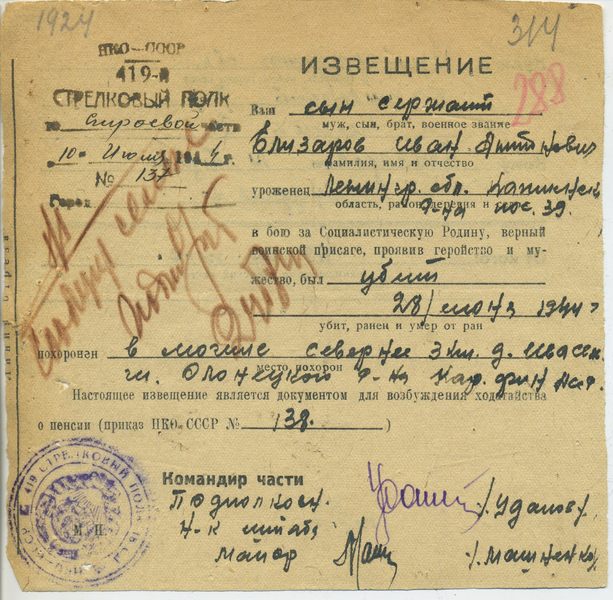 1924
314
НКО—СССР
419-й
СТРЕЛКОВЫЙ ПОЛК
288
по строевой части
10 Июля 1944 г.
№ 137
Город
ИЗВЕЩЕНИЕ
Ваш сын сержант
муж, сын, брат, военное звание
Елизаров Иван
фамилия, имя и отчество
уроженец Ленингр. обл.
область, район, деревня и
р-на пос. 39.
в бою за Социалистическую Родину, верный
воинской присяге, проявив геройство и му-
жество, был убит
28/июня 1944 г
убит, ранен и умер от ран
похоронен в могиле севернее 3 км. д.
место похорон
Олонецкого р-на Кар. фин
Настоящее извещение является документом для возбуждения ходатайства
о пенсии (приказ НКО СССР № 138. )
419 СТРЕЛКОВЫЙ ПОЛК
М. П.
Командир части
Подполков. /. Удалов/.
Н-к штаба
майор /. Машненко/